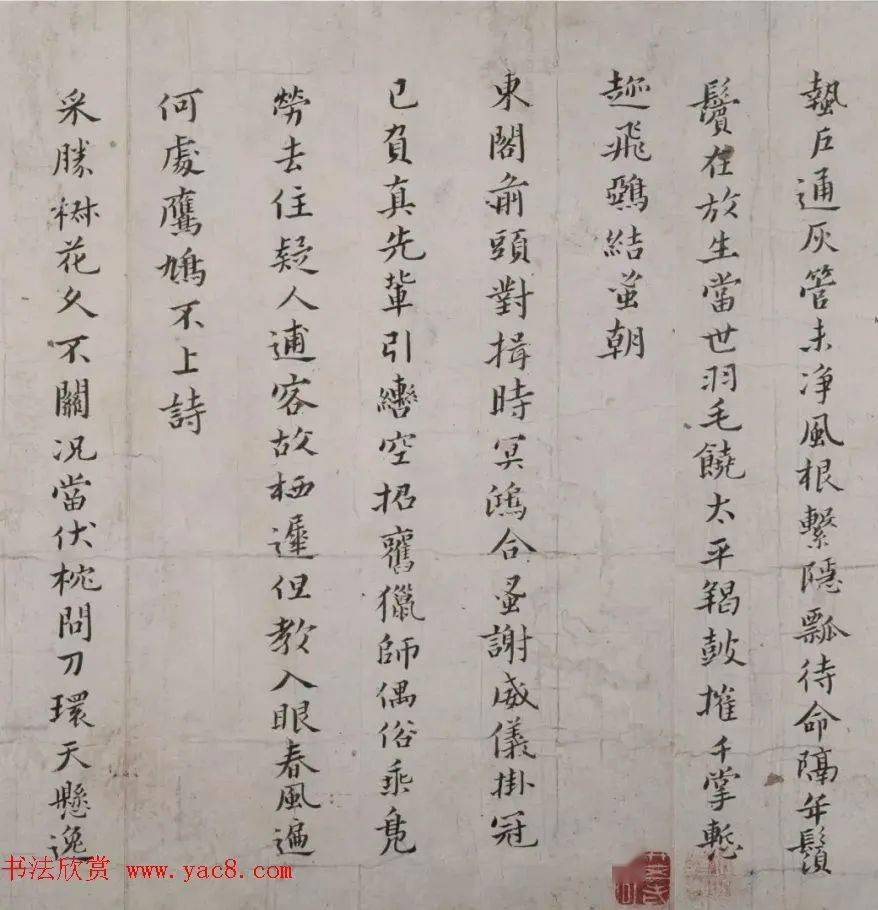 蟄戶通灰管未淨風根繫隱瓢待命隔年鬚
鬢在放生當世羽毛饒太平羯鼓摧千掌慙
飛鵶結蛍朝
東閣前頭對揖時冥鴻合蚤謝威儀掛冠
已負真先輩引轡空招舊獵師偶俗乘鳧
勞去住疑人逋客故栖遲但教入眼春風遍
何處鷹鳩不上詩
采勝楙花久不關況當伏枕問刀環天懸逸
书法欣赏 www.yac8.com